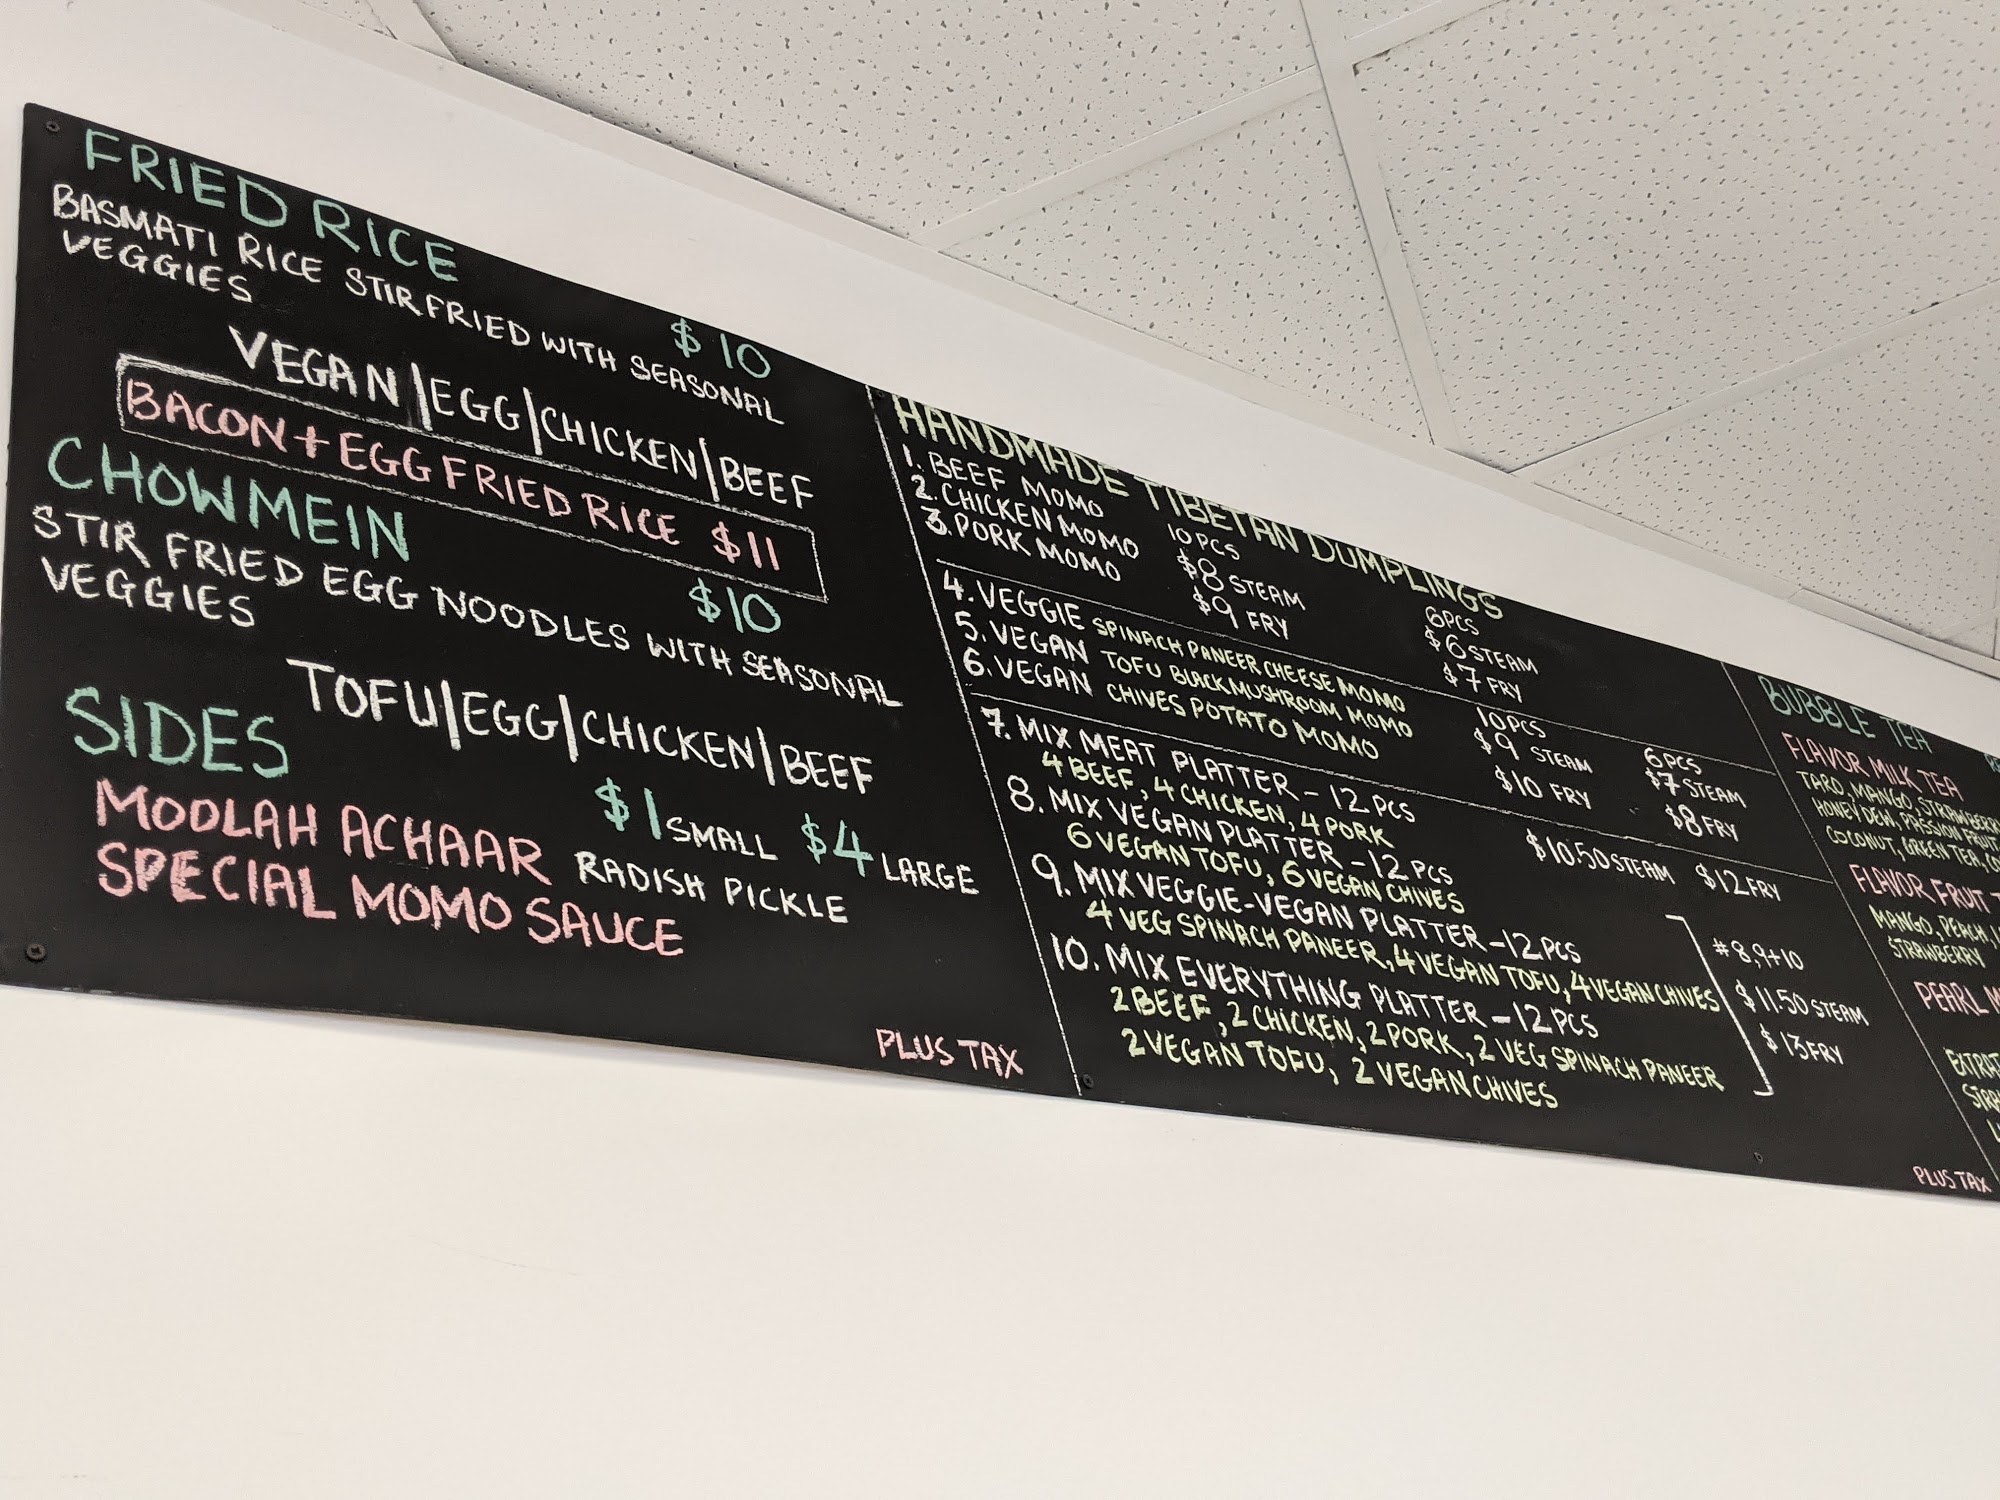 FRIED RICE
$10
BASMATI RICE STIR FRIED WITH SEASONAL
VEGGIES
VEGAN|EGG|CHICKEN|BEEF
BACON + EGG FRIED RICE $11
CHOWMEIN
$10
STIR FRIED EGG NOODLES WITH SEASONAL
VEGGIES
TOFU|EGG|CHICKEN|BEEF
SIDES
$1 SMALL $4 LARGE
MOOLAH ACHAAR RADISH PICKLE
SPECIAL MOMO SAUCE
PLUS TAX
HANDMADE TIBETAN DUMPLINGS
1. BEEF MOMO
2. CHICKEN MOMO
3. PORK MOMO
10 PCS
$8 STEAM
$9 FRY
6 PCS
$6 STEAM
$7 FRY
4. VEGGIE SPINACH PANEER CHEESE MOMO
5. VEGAN TOFU BLACK MUSHROOM MOMO
6. VEGAN CHIVES POTATO MOMO
10 PCS
$9 STEAM
$10 FRY
6 PCS
$7 STEAM
$8 FRY
7. MIX MEAT PLATTER - 12 PCS
4 BEEF, 4 CHICKEN, 4 PORK
$10.50 STEAM $12 FRY
8. MIX VEGAN PLATTER - 12 PCS
6 VEGAN TOFU, 6 VEGAN CHIVES
9. MIX VEGGIE-VEGAN PLATTER - 12 PCS
4 VEG SPINACH PANEER, 4 VEGAN TOFU, 4 VEGAN CHIVES
10. MIX EVERYTHING PLATTER - 12 PCS
2 BEEF, 2 CHICKEN, 2 PORK, 2 VEG SPINACH PANEER
2 VEGAN TOFU, 2 VEGAN CHIVES
# 8, 9 + 10
$11.50 STEAM
$13 FRY
BUBBLE TEA
FLAVOR MILK TEA
TARO, MANGO, STRAWBERRY
HONEYDEW, PASSION FRUIT
COCONUT, GREEN TEA,
FLAVOR FRUIT
MANGO, PEACH,
STRAWBERRY
PEARL
EXTRA
PLUS TAX